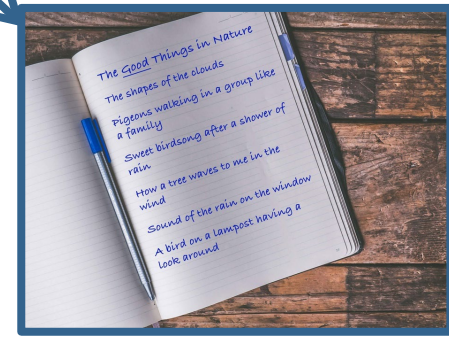 The Good Things in Nature
The shapes of the clouds
Pigeons walking in a group like
a family
Sweet birdsong after a shower of
rain
How a tree waves to me in the
wind
Sound of the rain on the window
A bird on a lampost having a
look around